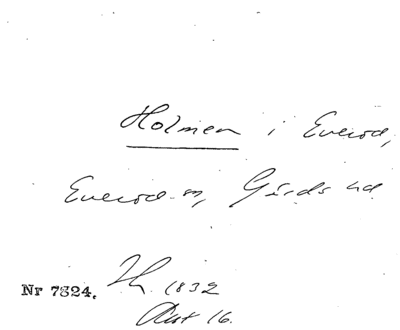 Holmen i Everöd,
Everöd sn, Gärds hd
Nr 7324. Th. 1832
Akt 16.